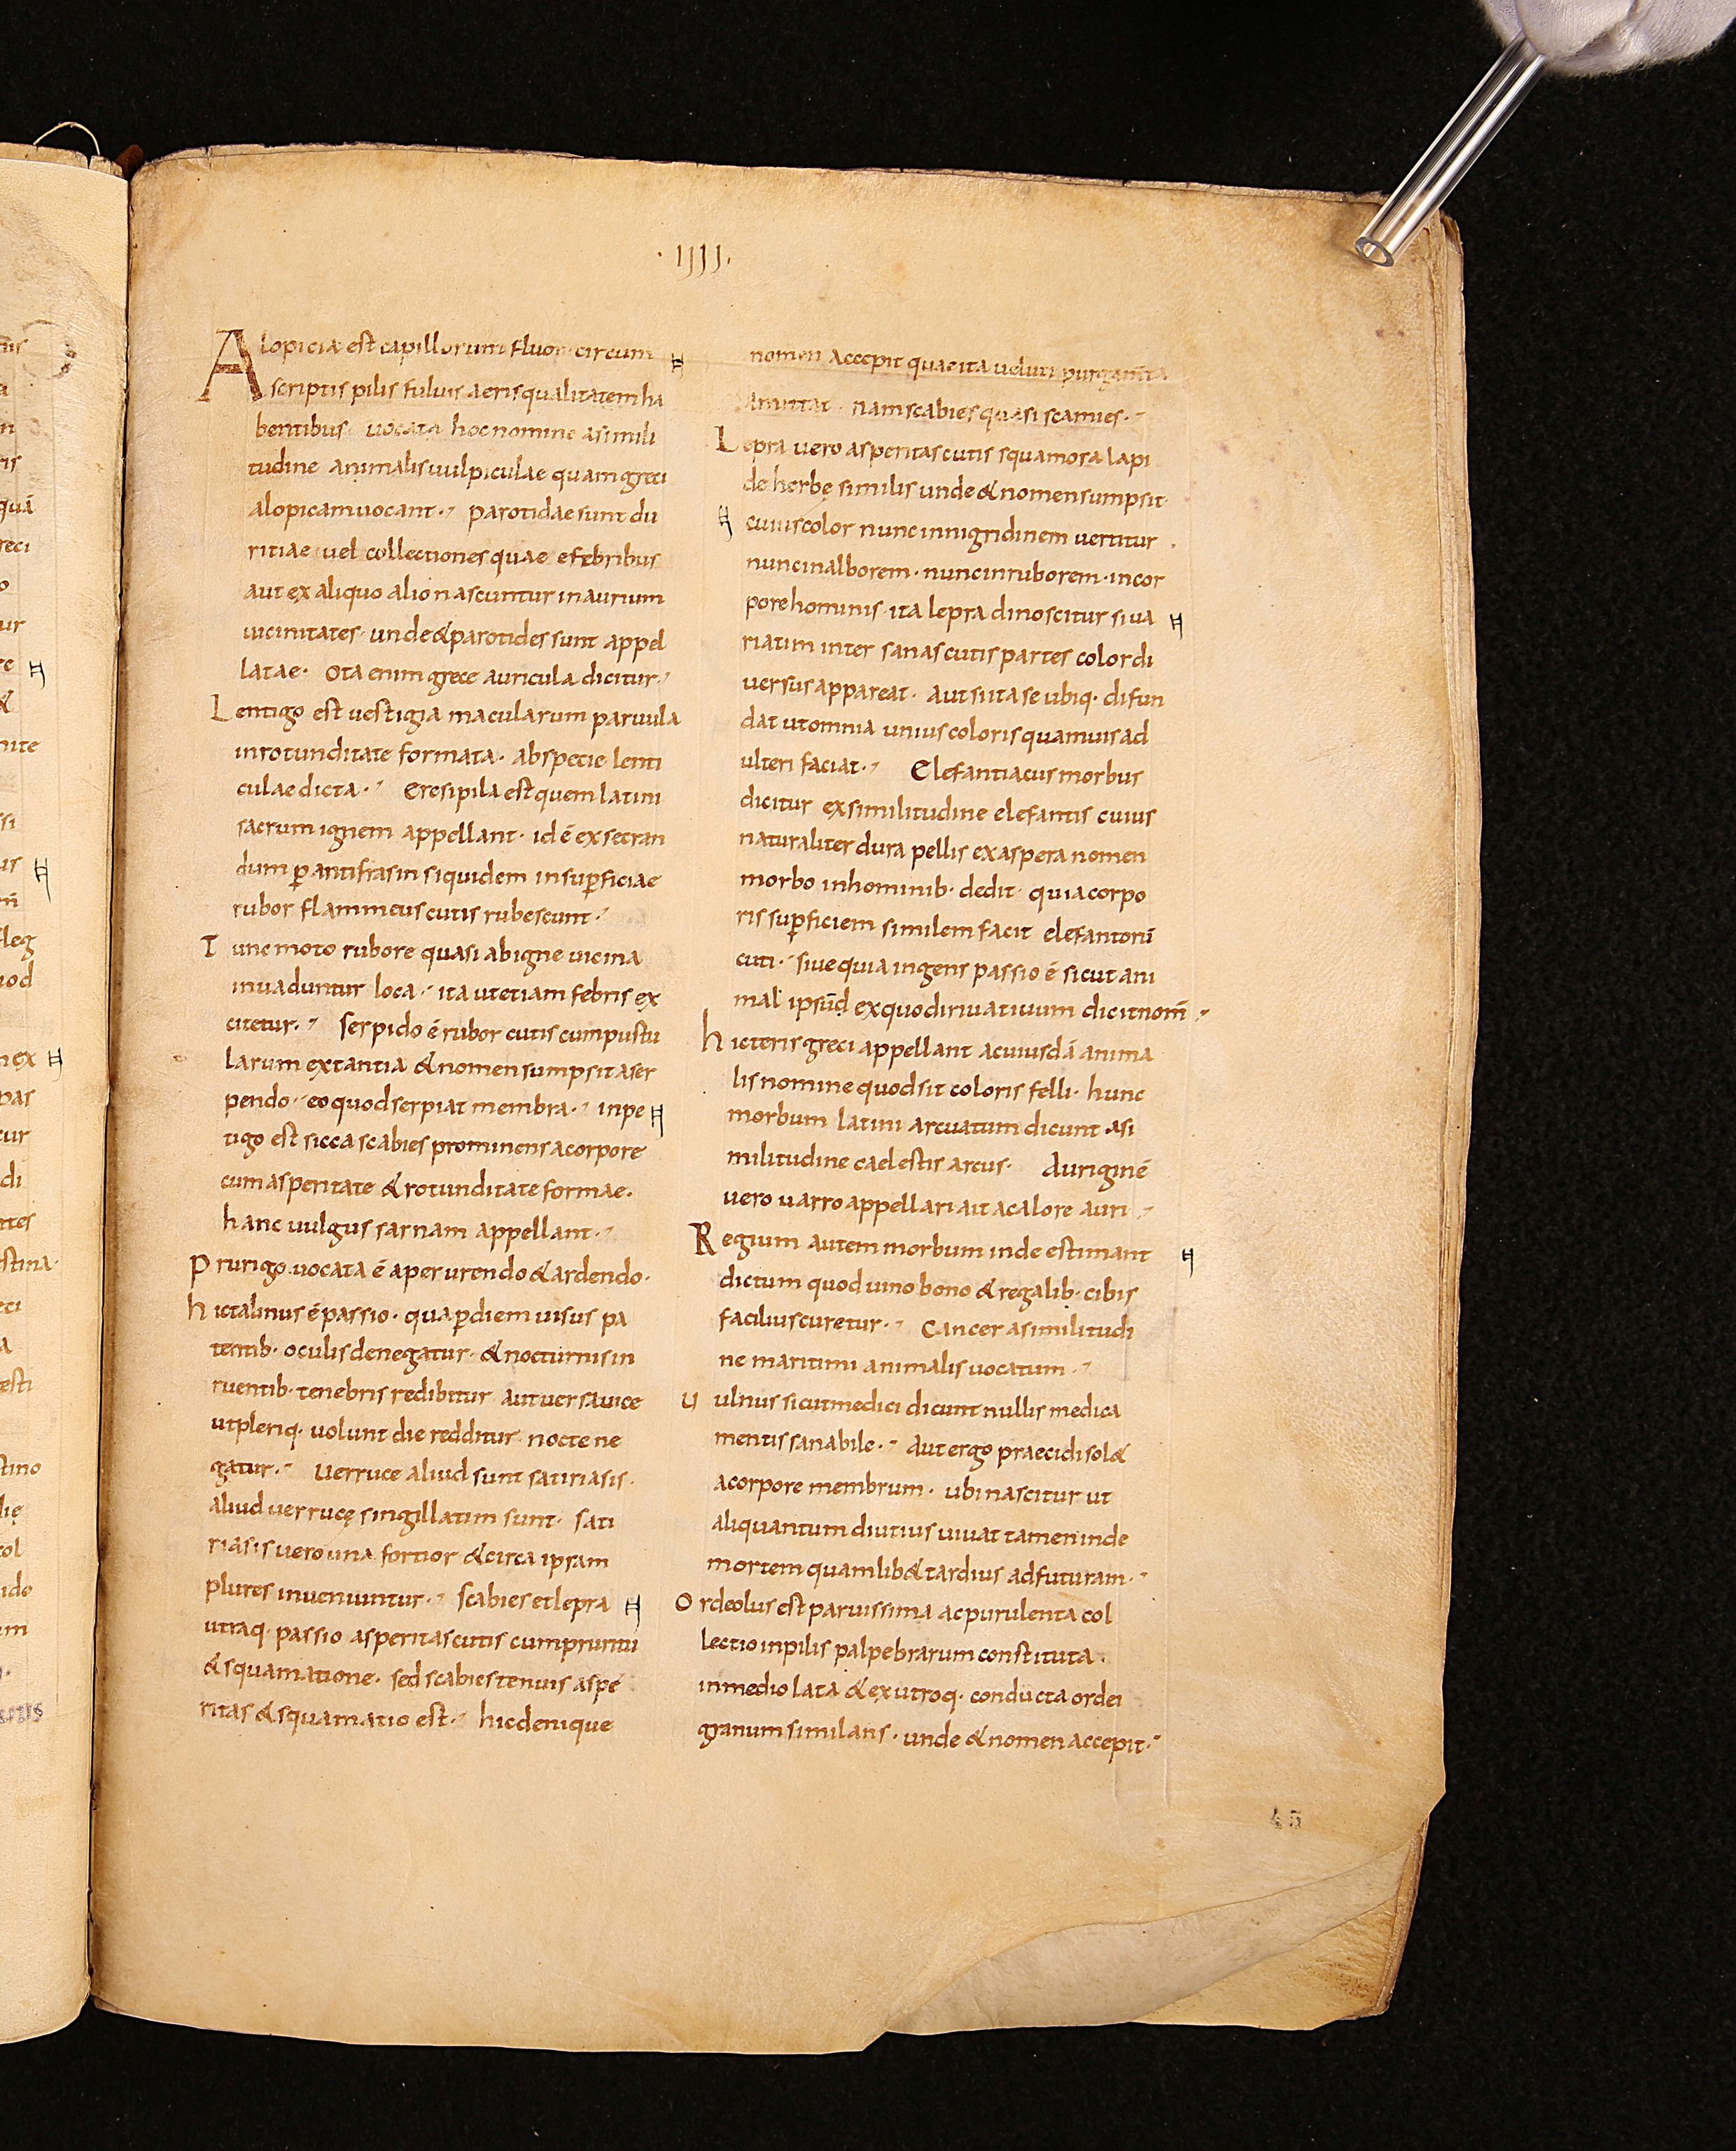 · IIII ·
Alopicia est capillorum fluor circum
scriptis pilis fuluis aeris qualitatem ha
bentibus · uocata hoc nomine a simili
tudine animalis uulpiculae quam greci
alopicam uocant · parotidae sunt du
ritiae uel collectiones quae e febribus
aut ex aliquo alio nascuntur in aurium
uicinitates · unde & parotides sunt appel
latae · Ota enim grece auricula dicitur ·
Lentigo est uestigia macularum paruula
in rotunditate formata · ab specie lenti
culae dicta · Eresipila est quem latini
sacrum ignem appellant · id ē exsecran
dum ꝑ antifrasin siquidem in suꝑficiae
rubor flammeus cutis rubescunt ·
Tunc moto rubore quasi ab igne uicina
inuaduntur loca · ita ut etiam febris ex
citetur · Serpido ē rubor cutis cum pustu
larum extantia & nomen sumpsit a ser
pendo · eo quod serpiat membra · inpe
tigo est sicca scabies prominens a corpore
cum asperitate & rotunditate formae ·
hanc uulgus sarnam appellant ·
Prurigo uocata ē a perurendo & ardendo ·
hictalinus ē passio · qua ꝑ diem uisus pa
tentib · oculis denegatur · & nocturnis in
ruentib · tenebris redibitur aut uersa uice
ut pleriq · uolunt die redditur nocte ne
gatur · Uerruce aliud sunt satiriasis ·
aliud uerrucę singillatim sunt · sati
riasis uero una fortior & circa ipsam
plures inueniuntur · Scabies et lepra
utraq · passio asperitas cutis cum pruritu
& squamatione · sed scabies tenuis aspe
ritas & squamatio est · hic denique
nomen accepit quae ita ueluti purgam̄ta
amittat · nam scabies quasi scamies ·
Lepra uero asperitas cutis squamosa lapi
de herbę similis unde & nomen sumpsit
cuius color nunc in nigridinem uertitur ·
nunc in alborem · nunc in ruborem · in cor
pore hominis · ita lepra dinoscitur si ua
riatim inter sanas cutis partes color di
uersus appareat · aut si ita se ubiq · difun
dat ut omnia unius coloris quamuis ad
ulteri faciat · Elefantiacus morbus
dicitur ex similitudine elefantis cuius
naturaliter dura pellis ex aspera nomen
morbo in hominib · dedit · quia corpo
ris suꝑficiem similem facit elefantorū
cuti · siue quia ingens passio ē sicut ani
mal ipsūd ex quo diriuatiuum dicit nom̄ ·
hicteris greci appellant a cuiusdā anima
lis nomine quod sit coloris felli · hunc
morbum latini arcuatum dicunt a si
militudine caelestis arcus · Auriginē
uero uarro appellari ait a calore auri ·
Regium autem morbum inde estimant
dictum quod uino bono & regalib · cibis
facilius curetur · Cancer a similitudi
ne maritimi animalis uocatum ·
Uulnus sicut medici dicunt nullis medica
mentis sanabile · Aut ergo praecidi sol&
a corpore membrum · ubi nascitur ut
aliquantum diutius uiuat tamen inde
mortem quamlib& tardius adfuturam ·
Ordeolus est paruissima ac purulenta col
lectio in pilis palpebrarum constituta ·
in medio lata & ex utroq · conducta ordei
granum similans · unde & nomen accepit ·
45